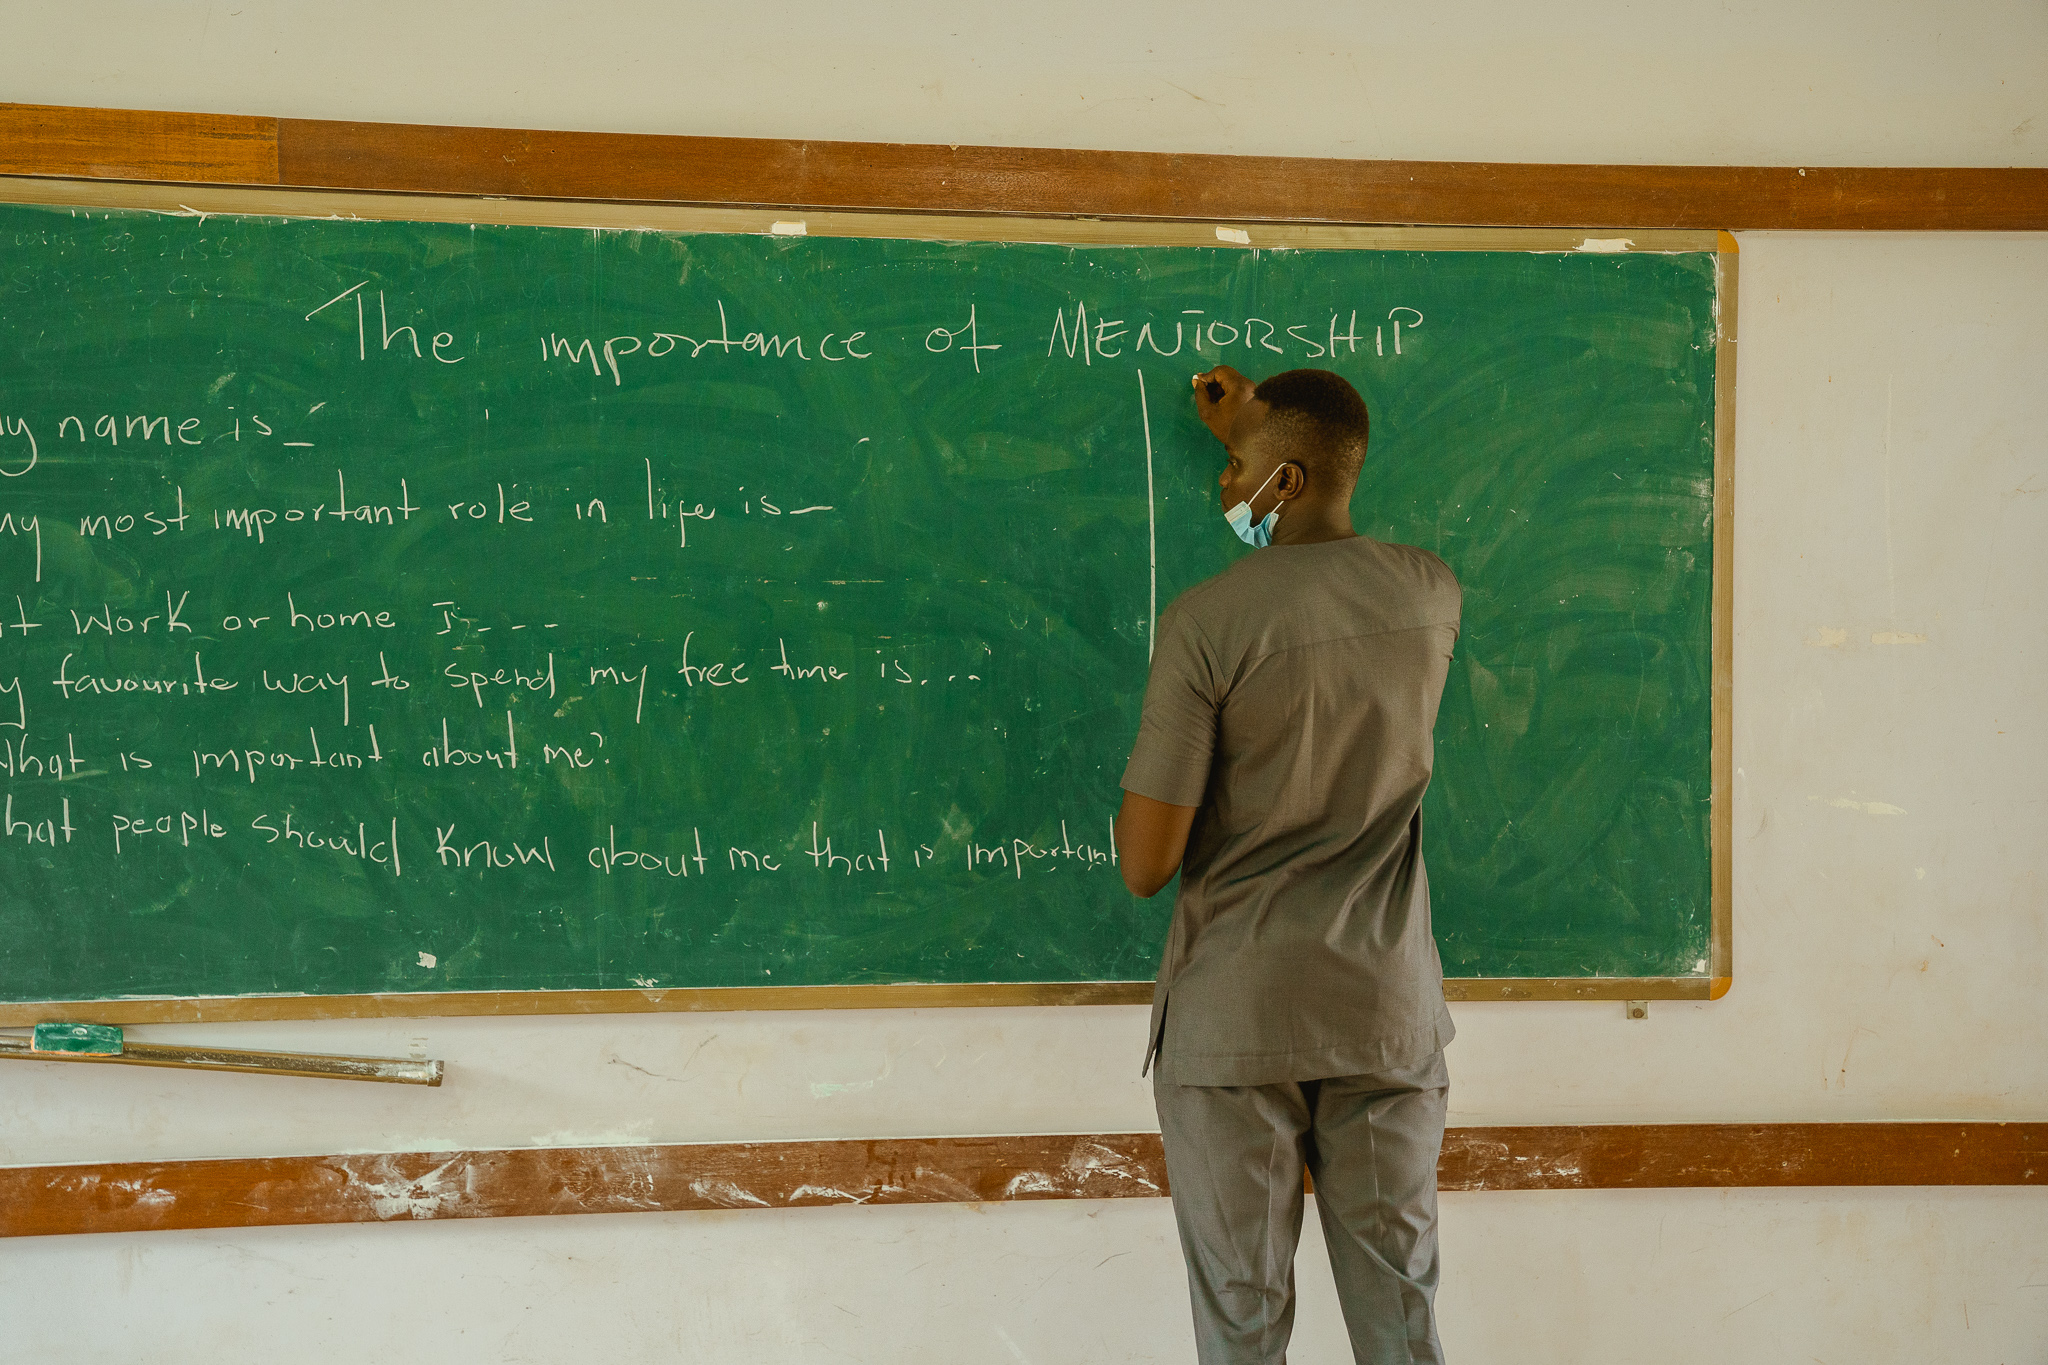 The importance of MENTORSHIP
y name is_
my most important role in life is_
t Work or home I_ - - -
y favourite way to spend my free time is...
hat is important about me?
hat people should know about me that is important